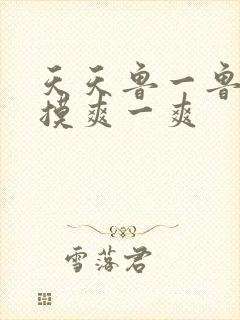 天天鲁一鲁
摸爽一爽
雪落君